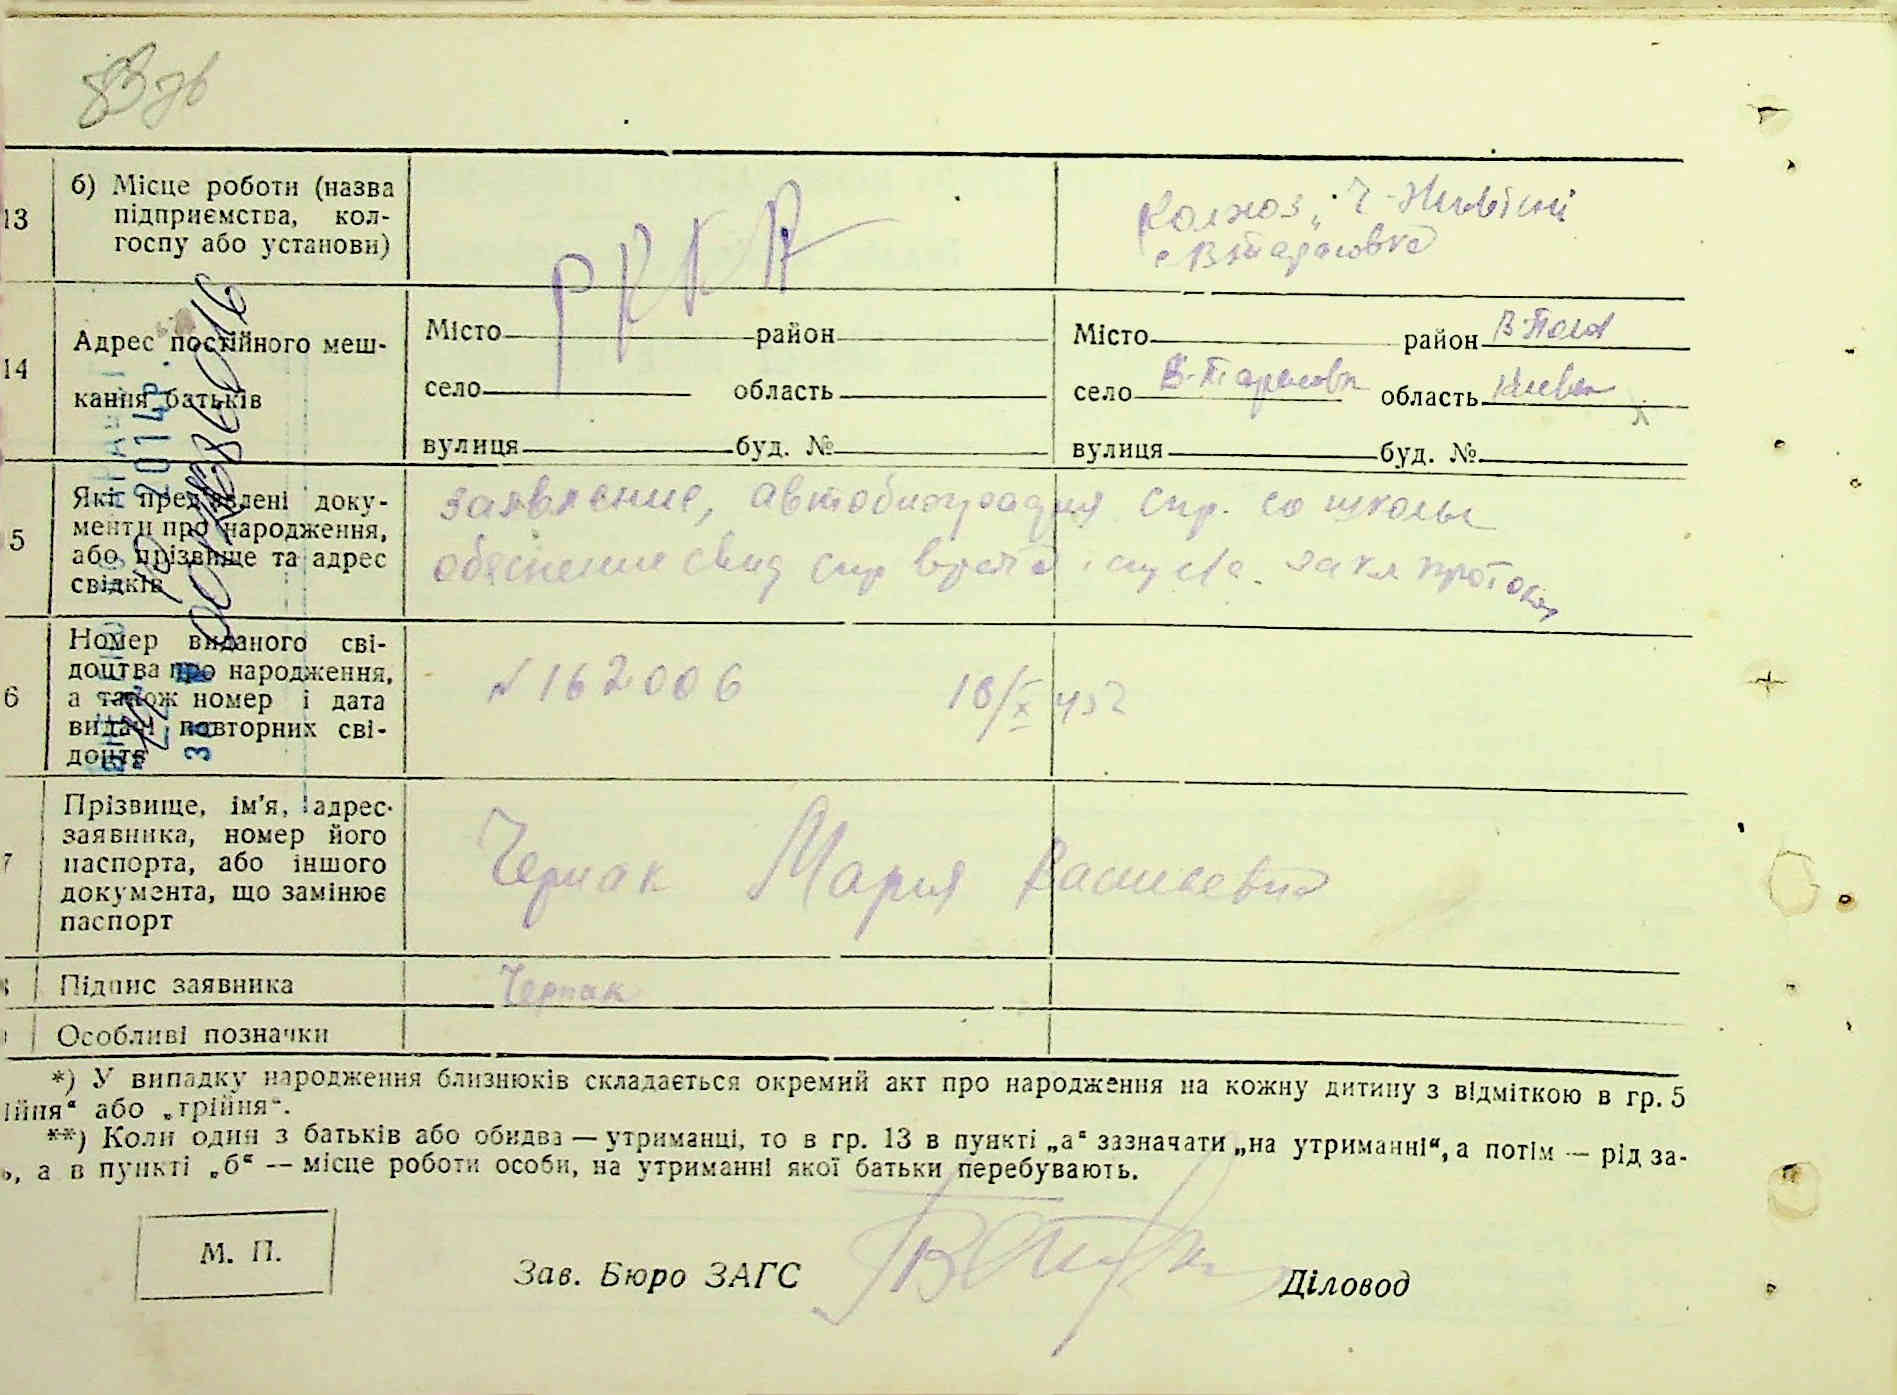 13
б) Місце роботи (назва
підприємства, кол-
госпу або установи)
РККА
Колхоз „
14
Адрес постійного меш-
кання батьків
Місто район
село область
вулиця буд. №
Місто район
село В-Тарасовк область Киевск
вулиця буд. №
2014р.
5
Які пред'явлені доку-
менти про народження,
або прізвище та адрес
свідків
заявление, автобиография спр. со школы
спр врача закл протокол
6
Номер виданого сві-
доцтва про народження,
а також номер і дата
видачі повторних сві-
доцтв
№ 162006
7
Прізвище, ім'я, адрес
заявника, номер його
паспорта, або іншого
документа, що замінює
паспорт
Черпак Мария Васильевна
Підпис заявника
Черпак
Особливі позначки
*) У випадку народження близнюків складається окремий акт про народження на кожну дитину з відміткою в гр. 5
ійня“ або „трійня“.
**) Коли один з батьків або обидва — утриманці, то в гр. 13 в пункті „а“ зазначати „на утриманні“, а потім — рід за-
ь, а в пункті „б“ — місце роботи особи, на утриманні якої батьки перебувають.
М. П.
Зав. Бюро ЗАГС Діловод